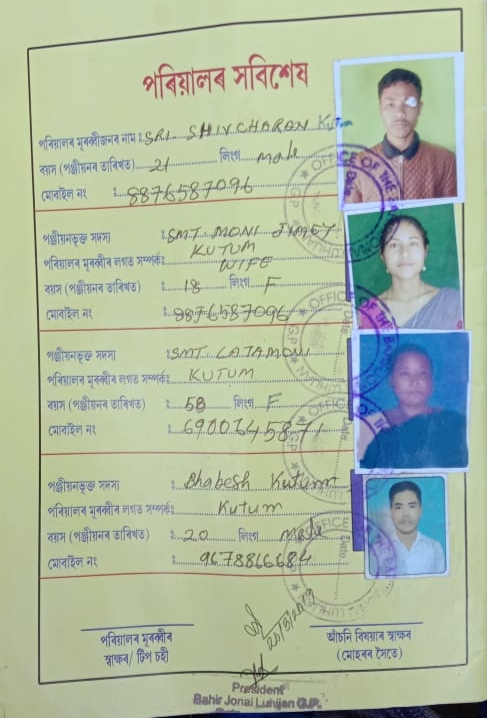 পৰিয়ালৰ সবিশেষ
পৰিয়ালৰ মূৰব্বীজনৰ নাম : SRI. SHIVCHARAN KUTUM
বয়স (পঞ্জীয়নৰ তাৰিখত) 21 লিংগ male
মোবাইল নং : 8876587096
পঞ্জীয়নভুক্ত সদস্য : SMT. MONI JIMEY
KUTUM
পৰিয়ালৰ মূৰব্বীৰ লগত সম্পৰ্ক: WIFE
বয়স (পঞ্জীয়নৰ তাৰিখত) : 18 লিংগ F
মোবাইল নং : 8876587096
পঞ্জীয়নভুক্ত সদস্য : SMT LATAMONI
পৰিয়ালৰ মূৰব্বীৰ লগত সম্পৰ্ক: KUTUM
বয়স (পঞ্জীয়নৰ তাৰিখত) : 58 লিংগ F
মোবাইল নং : 6900745871
পঞ্জীয়নভুক্ত সদস্য : Bhabesh Kutum
পৰিয়ালৰ মূৰব্বীৰ লগত সম্পৰ্ক: Kutum
বয়স (পঞ্জীয়নৰ তাৰিখত) : 20 লিংগ Male
মোবাইল নং : 9678866684
পৰিয়ালৰ মূৰব্বীৰ
স্বাক্ষৰ/ টিপ চহী
আঁচনি বিষয়াৰ স্বাক্ষৰ
(মোহৰৰ সৈতে)
President
Bahir Jonai Luhijan G.P.